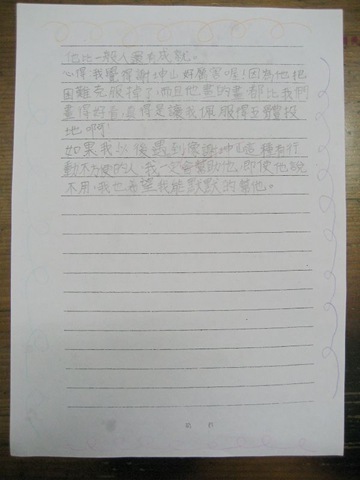 他比一般人還有成就。
心得:我覺得謝坤山好厲害喔!因為他把
困難克服掉了,而且他畫的畫,都比我們
畫得好看,真得是讓我佩服得五體投
地啊!
如果我以後遇到像謝坤山這種有行
動不方便的人,我一定會幫助他,即使他說
不用,我也希望我能默默的幫他。